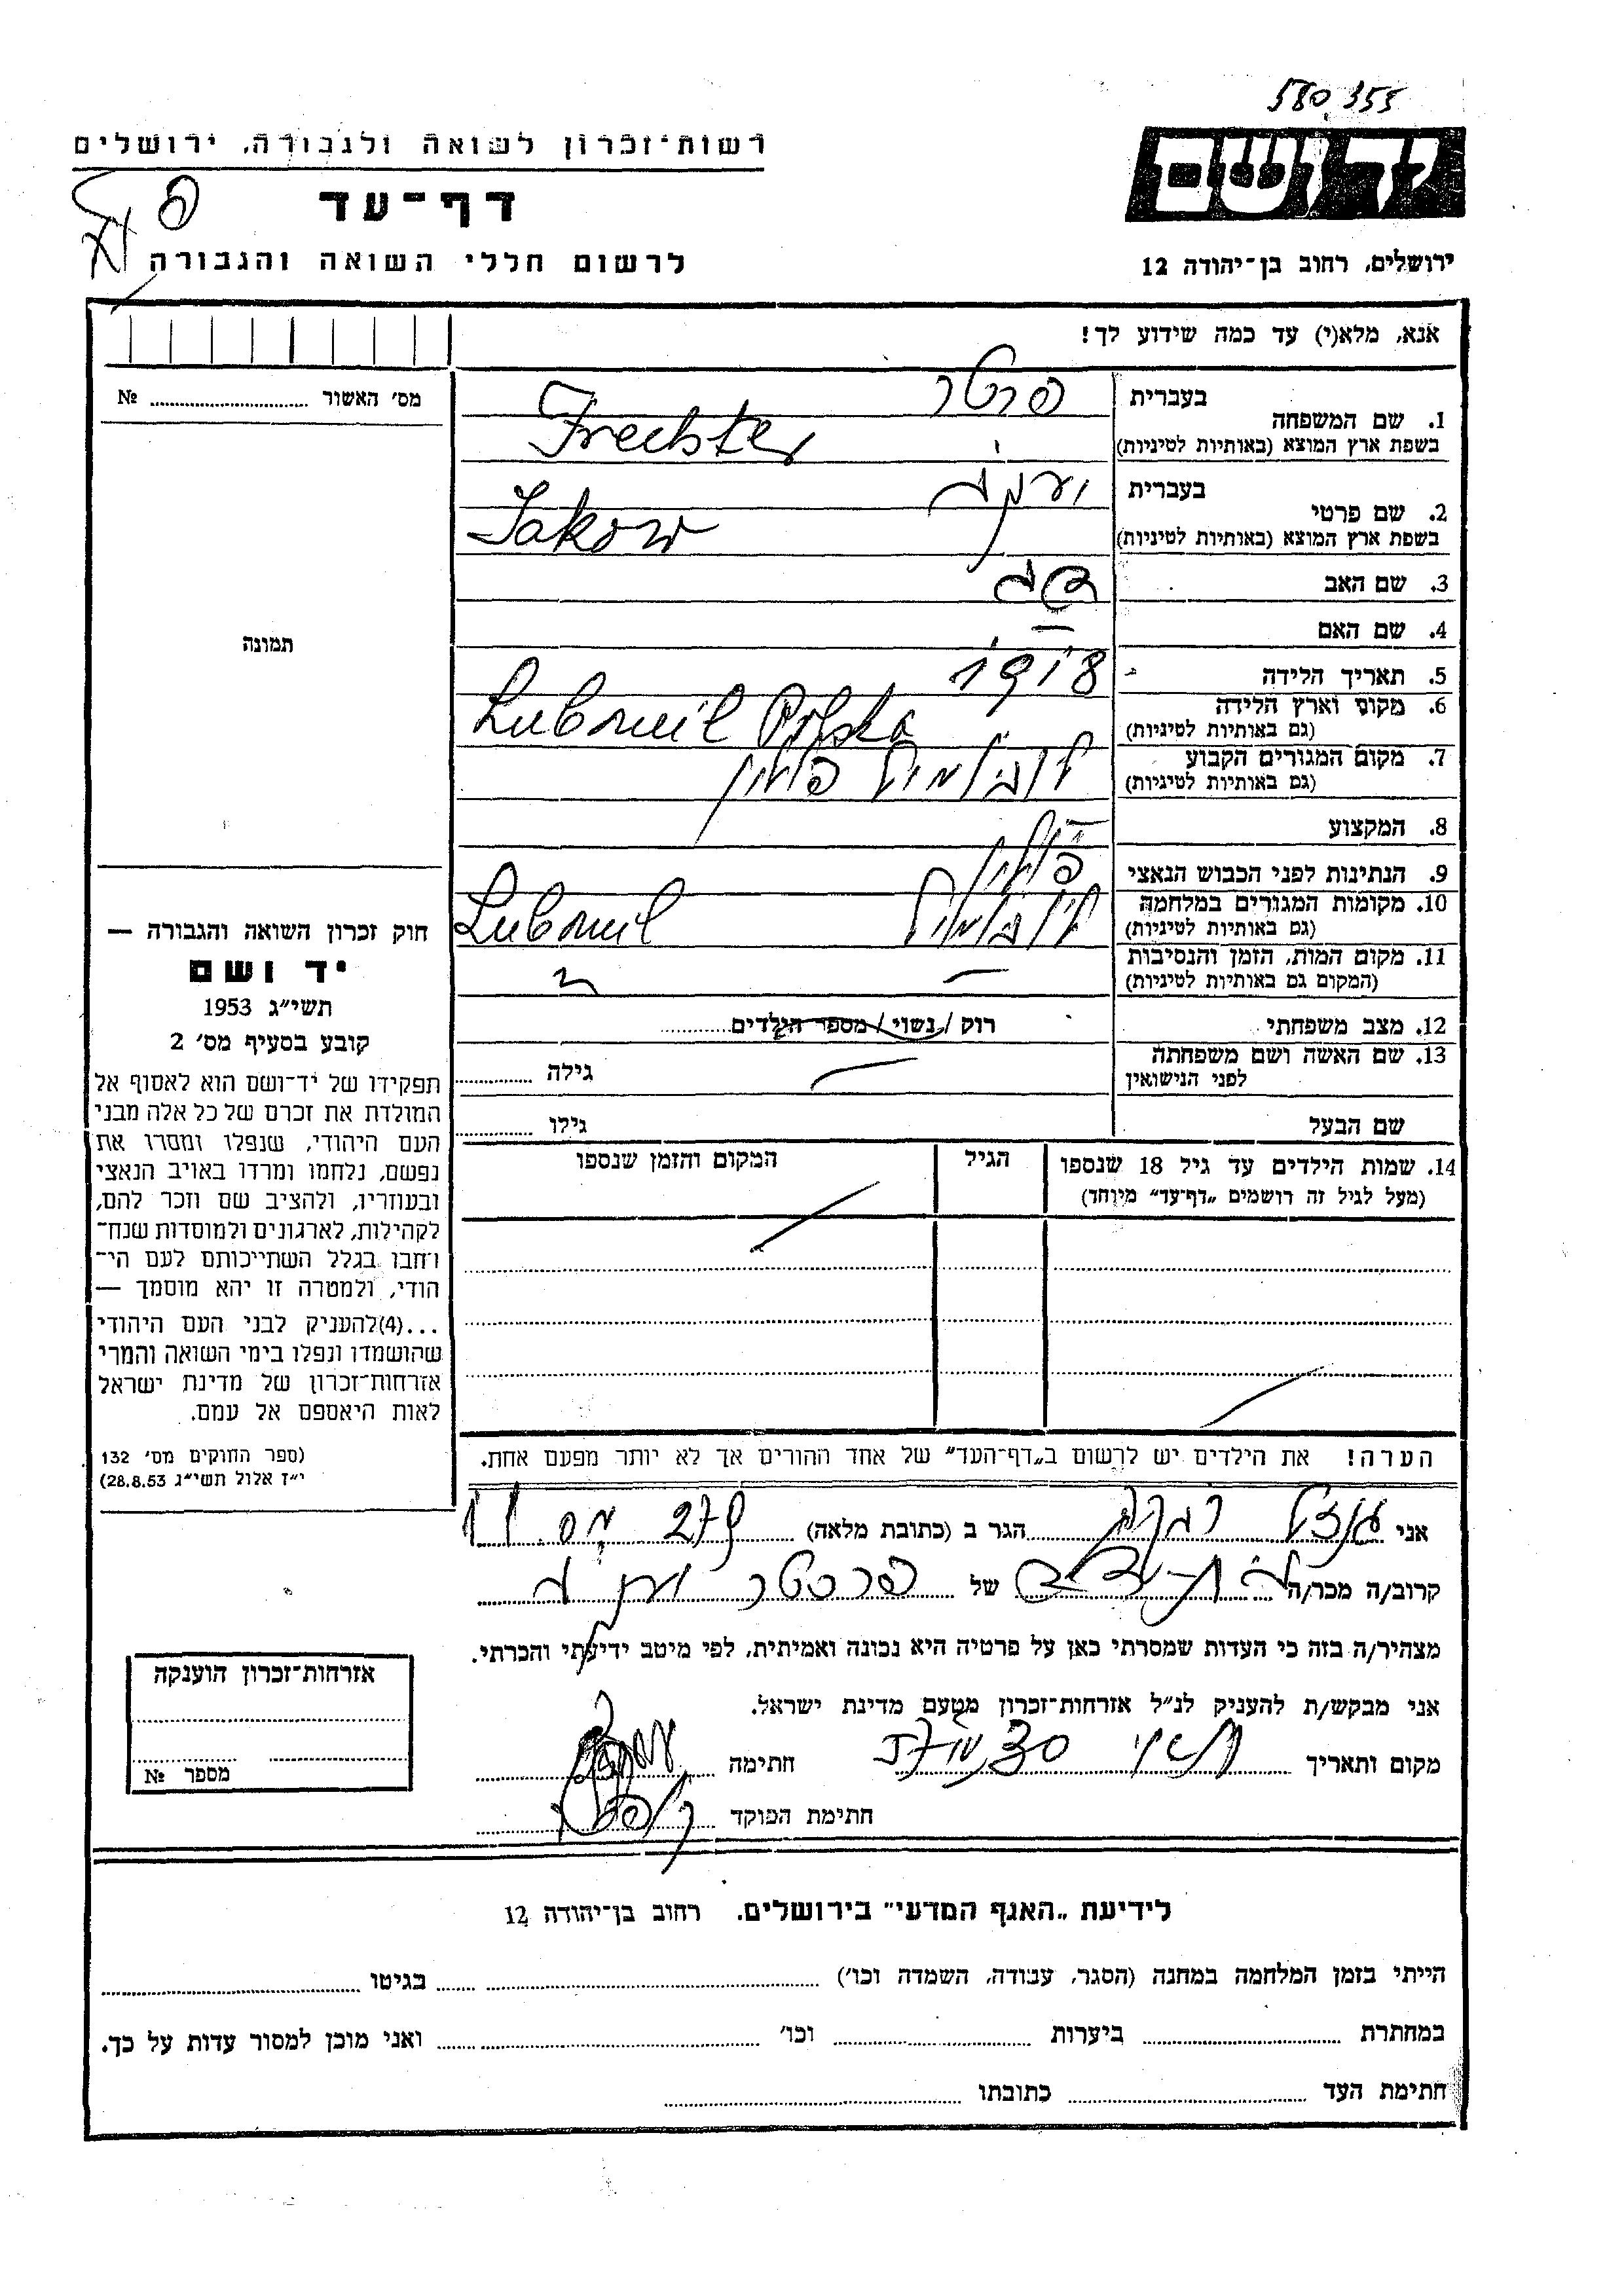 580 353
רשות־זכרון לשואה ולגבורה, ירושלים
יד ושם
דף־עד
לרשום חללי השואה והגבורה
ירושלים, רחוב בן־יהודה 12
אנא, מלא(י) עד כמה שידוע לך!
מס׳ האשור ........ №
תמונה
1. שם המשפחה
בעברית
בשפת ארץ המוצא (באותיות לטיניות)
Frechter
2. שם פרטי
בעברית יעקב
בשפת ארץ המוצא (באותיות לטיניות)
Jakow
3. שם האב
4. שם האם —
5. תאריך הלידה 1918
6. מקום וארץ הלידה
(גם באותיות לטיניות)
Lubomil Polska
7. מקום המגורים הקבוע
(גם באותיות לטיניות)
לובומיל פולין
8. המקצוע —
9. הנתינות לפני הכבוש הנאצי פולין
10. מקומות המגורים במלחמה
(גם באותיות לטיניות)
לובומיל Lubomil
11. מקום המות, הזמן והנסיבות
(המקום גם באותיות לטיניות)
12. מצב משפחתי רוק / נשוי / מספר הילדים........
13. שם האשה ושם משפחתה
לפני הנישואין
גילה ........
שם הבעל גילו ........
14. שמות הילדים עד גיל 18 שנספו
(מעל לגיל זה רושמים „דף־עד״ מיוחד)
הגיל
המקום והזמן שנספו
חוק זכרון השואה והגבורה —
יד ושם
תשי״ג 1953
קובע בסעיף מס׳ 2
תפקידו של יד־ושם הוא לאסוף אל
המולדת את זכרם של כל אלה מבני
העם היהודי, שנפלו ומסרו את
נפשם, נלחמו ומרדו באויב הנאצי
ובעוזריו, ולהציב שם וזכר להם,
לקהילות, לארגונים ולמוסדות שנח־
רחבו בגלל השתייכותם לעם הי־
הודי, ולמטרה זו יהא מוסמך —
...(4)להעניק לבני העם היהודי
שהושמדו ונפלו בימי השואה והמרי
אזרחות־זכרון של מדינת ישראל
לאות היאספם אל עמם.
(ספר החוקים מס׳ 132
י״ז אלול תשי״ג 28.8.53)
הערה! את הילדים יש לרשום ב„דף־העד״ של אחד ההורים אך לא יותר מפעם אחת.
אני רבקה הגר ב (כתובת מלאה)
קרוב/ה מכר/ה של
מצהיר/ה בזה כי העדות שמסרתי כאן על פרטיה היא נכונה ואמיתית, לפי מיטב ידיעתי והכרתי.
אני מבקש/ת להעניק לנ״ל אזרחות־זכרון מטעם מדינת ישראל.
מקום ותאריך חתימה
חתימת הפוקד
אזרחות־זכרון הוענקה
מספר №
לידיעת „האגף המדעי״ בירושלים. רחוב בן־יהודה 12
הייתי בזמן המלחמה במחנה (הסגר, עבודה, השמדה וכו׳) ........ בגיטו ........
במחתרת ........ ביערות ........ וכו׳ ........ ואני מוכן למסור עדות על כך.
חתימת העד ........ כתובתו ........